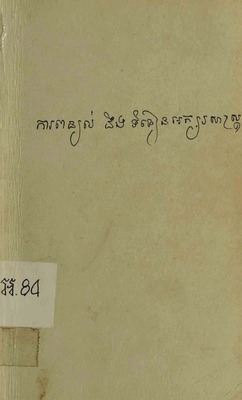 ការពន្យល់ និង ទំនៀនអក្សរសាស្ត្រ
អ.84